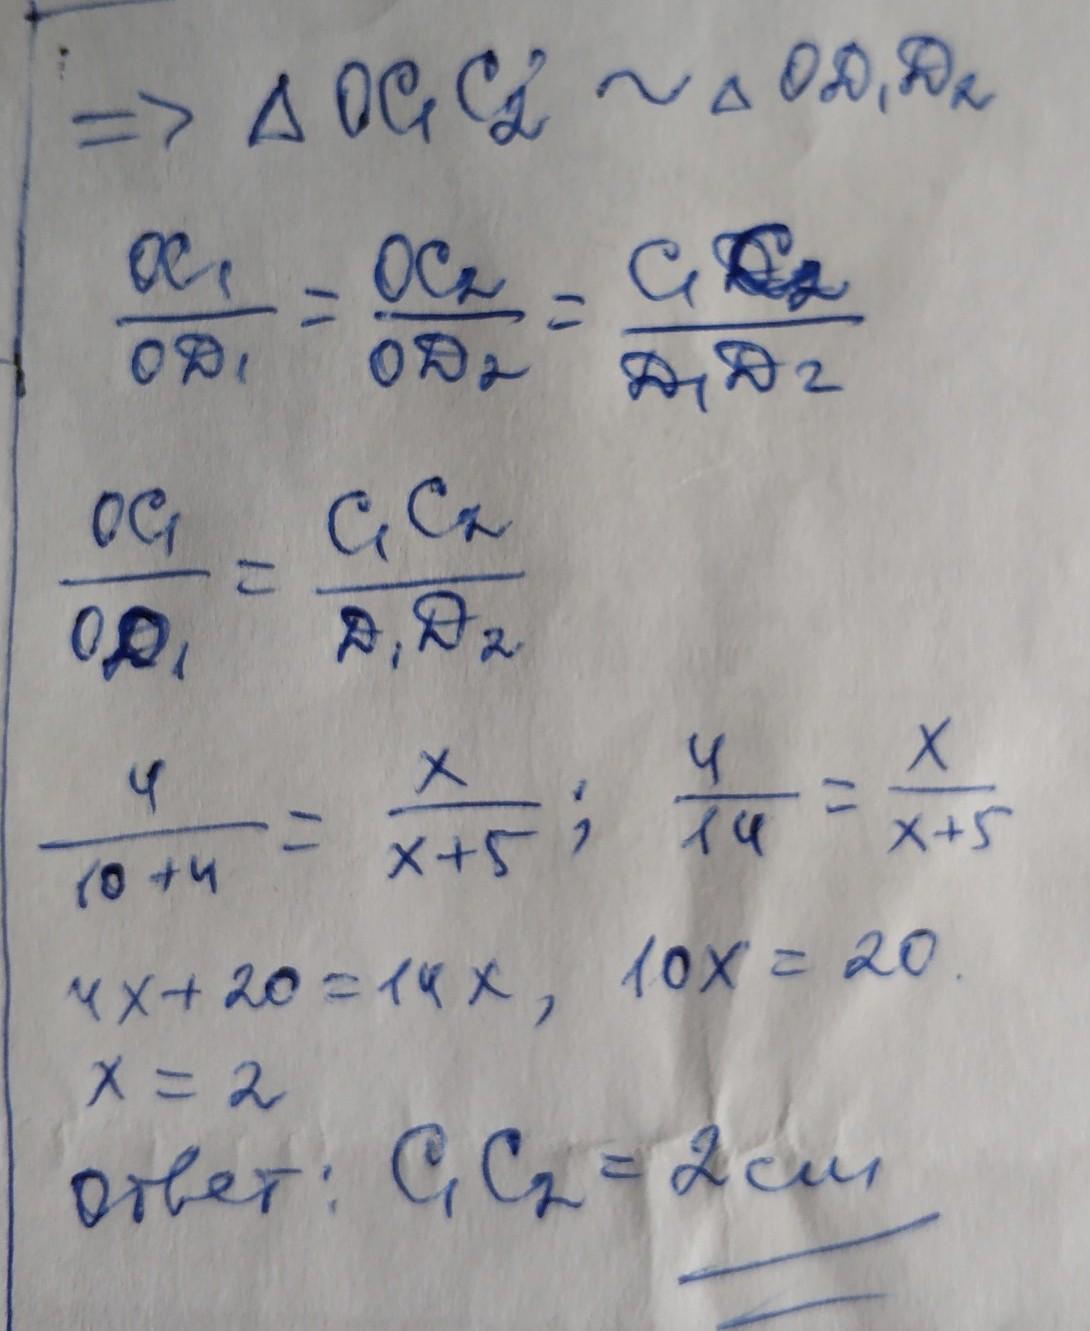 => Δ OC₁C₂ ~ Δ OД₁Д₂
OC₁/OД₁ = OC₂/OД₂ = C₁C₂/Д₁Д₂
OC₁/OД₁ = C₁C₂/Д₁Д₂
4/10+4 = x/x+5 ; 4/14 = x/x+5
4x+20=14x, 10x=20.
x = 2
ответ: C₁C₂ = 2см